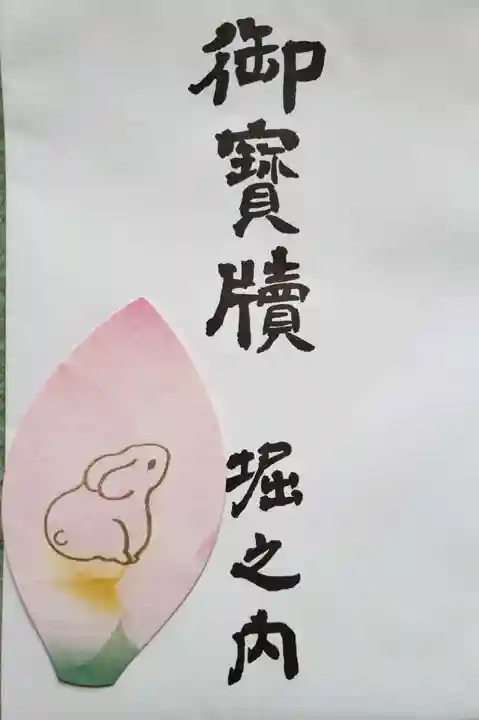 御寶牘　堀之内